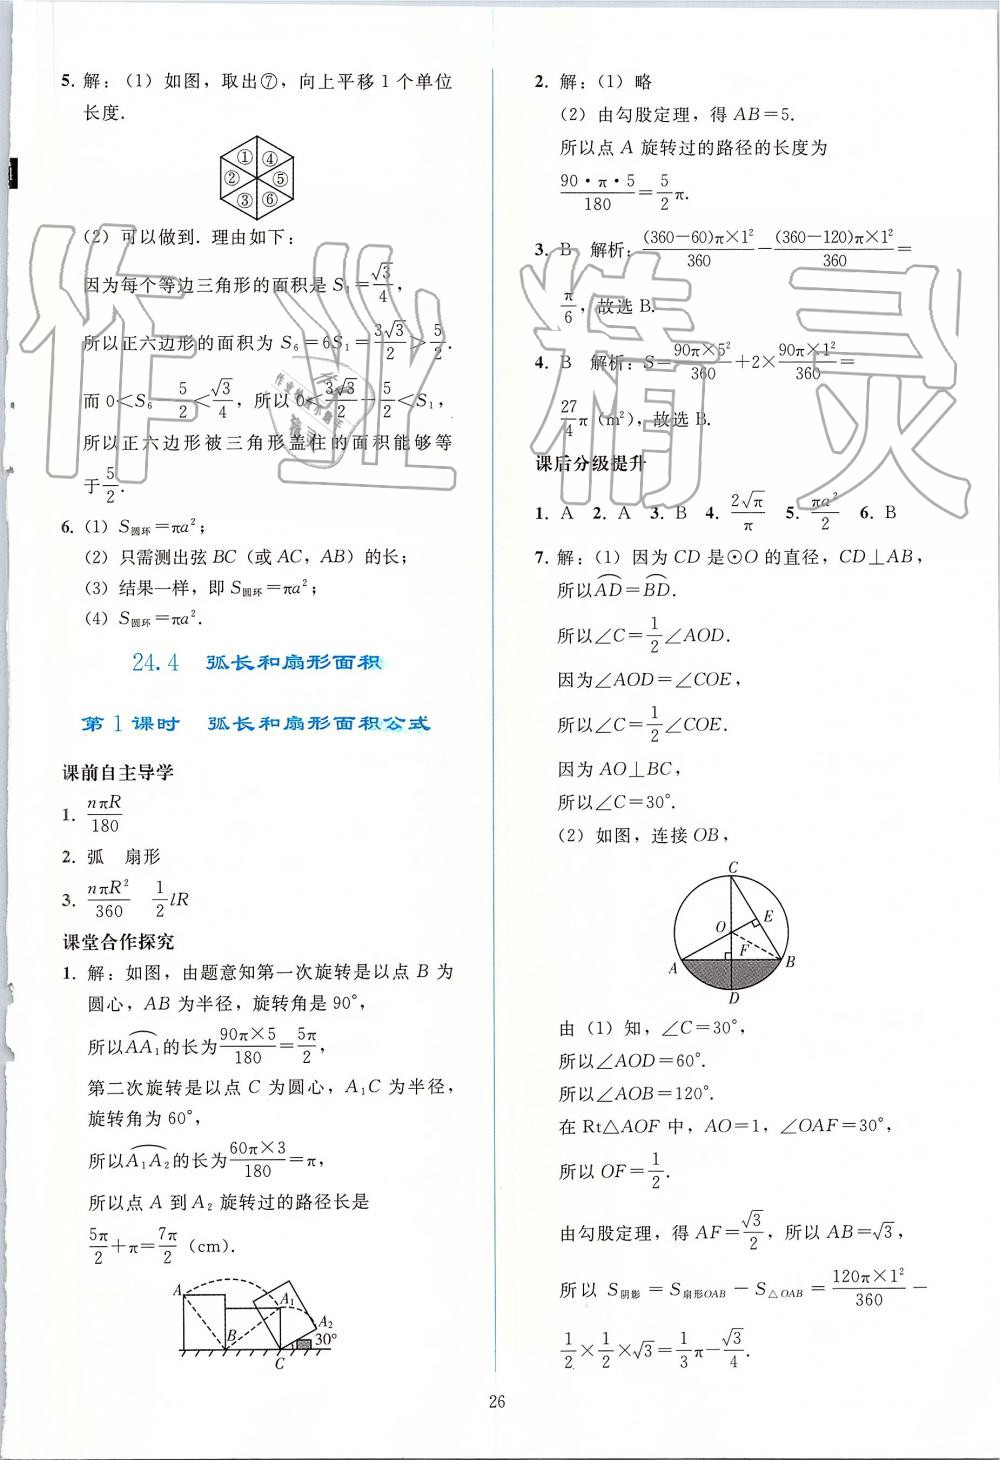 5. 解：(1) 如图，取出⑦，向上平移 1 个单位
长度.
① ④
② ⑤
③ ⑥
(2) 可以做到. 理由如下：
因为每个等边三角形的面积是 S₁=√3/4，
所以正六边形的面积为 S₆=6S₁=3√3/2>5/2.
而 0<S₆-5/2<√3/4，所以 0<3√3/2-5/2<S₁，
所以正六边形被三角形盖住的面积能够等
于5/2.
6. (1) S圆环=πa²；
(2) 只需测出弦 BC（或 AC，AB）的长；
(3) 结果一样，即 S圆环=πa²；
(4) S圆环=πa².
24.4 弧长和扇形面积
第 1 课时 弧长和扇形面积公式
课前自主导学
1. nπR/180
2. 弧 扇形
3. nπR²/360 1/2 lR
课堂合作探究
1. 解：如图，由题意知第一次旋转是以点 B 为
圆心，AB 为半径，旋转角是 90°，
所以⌒AA₁的长为90π×5/180=5π/2，
第二次旋转是以点 C 为圆心，A₁C 为半径，
旋转角为 60°，
所以⌒A₁A₂的长为60π×3/180=π，
所以点 A 到 A₂ 旋转过的路径长是
5π/2+π=7π/2 (cm).
A A₁ A₂
B C 30°
2. 解：(1) 略
(2) 由勾股定理，得 AB=5.
所以点 A 旋转过的路径的长度为
90·π·5/180=5/2π.
3. B 解析：(360-60)π×1²/360-(360-120)π×1²/360=
π/6，故选 B.
4. B 解析：S=90π×5²/360+2×90π×1²/360=
27/4π (m²)，故选 B.
课后分级提升
1. A 2. A 3. B 4. 2√π/π 5. πa²/2 6. B
7. 解：(1) 因为 CD 是⊙O 的直径，CD⊥AB，
所以⌒AD=⌒BD.
所以∠C=1/2∠AOD.
因为∠AOD=∠COE，
所以∠C=1/2∠COE.
因为 AO⊥BC，
所以∠C=30°.
(2) 如图，连接 OB，
C
O E
F
A B
D
由 (1) 知，∠C=30°，
所以∠AOD=60°.
所以∠AOB=120°.
在 Rt△AOF 中，AO=1，∠OAF=30°，
所以 OF=1/2.
由勾股定理，得 AF=√3/2，所以 AB=√3，
所以 S阴影=S扇形OAB-S△OAB=120π×1²/360-
1/2×1/2×√3=1/3π-√3/4.
26
作业精灵